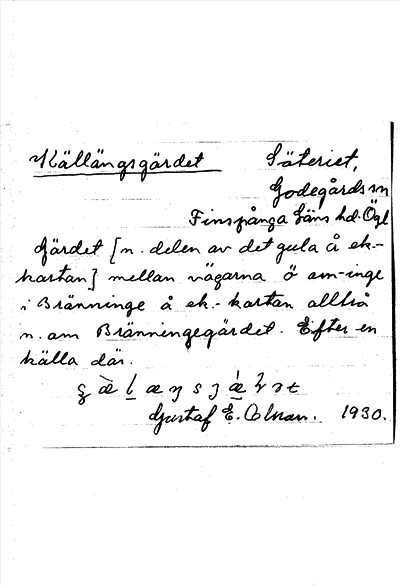 Källängsgärdet Säteriet,
Godegårds sn
Finspånga läns hd. Ögl
Gärdet [n. delen av det gula å ek.-
kartan] mellan vägarna ö om -inge
i Bränninge å ek.-kartan alltså
n. om Bränningegärdet. Efter en
källa där.
Gustaf E. Colman. 1930.